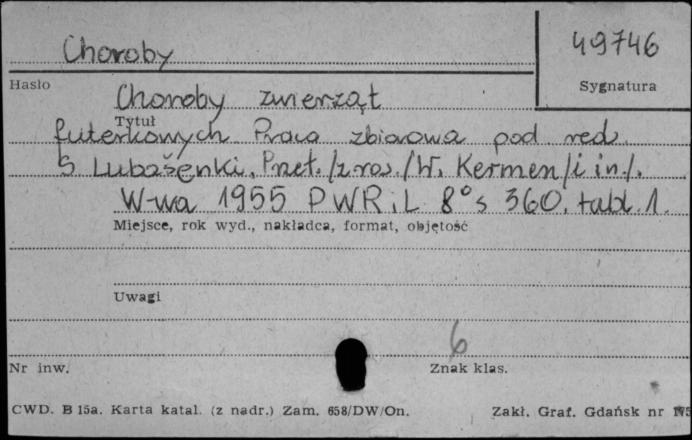 Choroby
49746
Hasło
Sygnatura
Choroby zwierząt
Tytuł
futerkowych. Praca zbiorowa pod red.
S Lubašenki. Przet. /z ros./ W. Kermen /i in./.
W-wa 1955 PWRiL 8° s 360, tabl. 1.
Miejsce, rok wyd., nakładca, format, objętość
Uwagi
6
Nr inw.
Znak klas.
CWD. B 15a. Karta katal. (z nadr.) Zam. 658/DW/On.
Zakł. Graf. Gdańsk nr